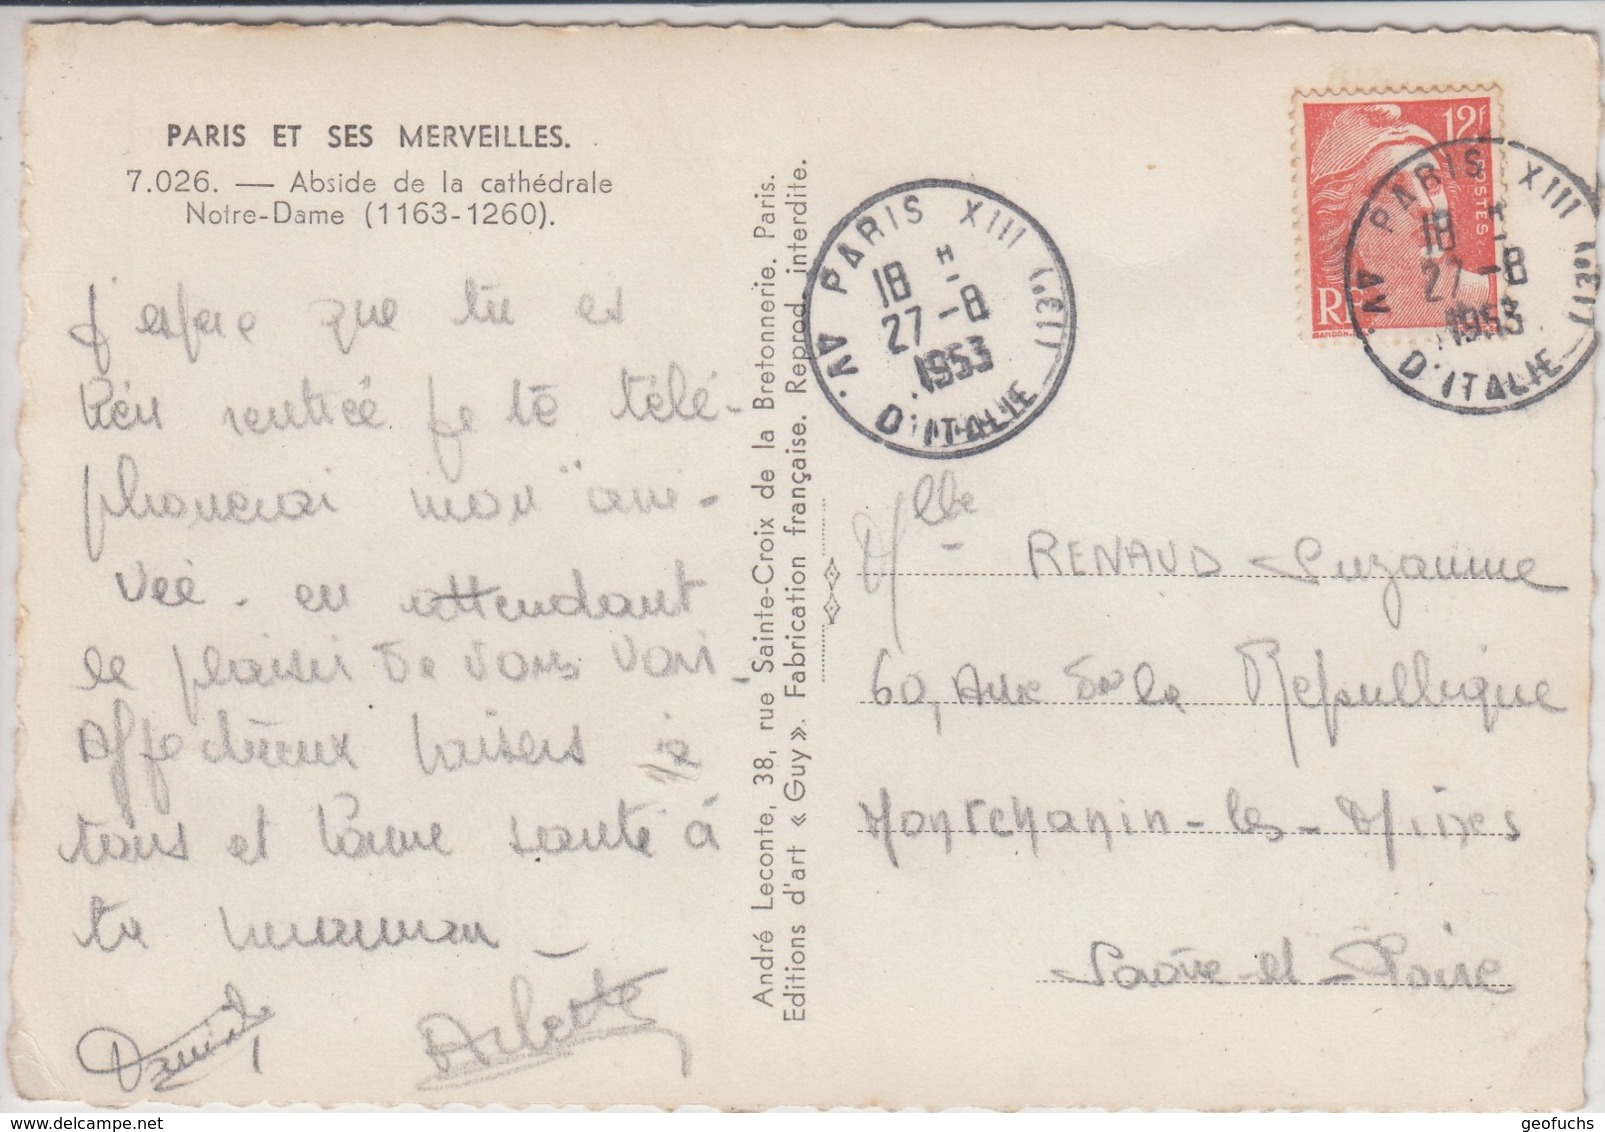 PARIS ET SES MERVEILLES.
7.026. — Abside de la cathédrale
Notre-Dame (1163-1260).
J'espère que tu es
bien rentrée je te télé-
phonerai mon arri-
vée. en attendant
le plaisir de vous voir.
Affectueux baisers à
tous et bonne santé à
ta maman
Daniel
Arlette
André Leconte, 38, rue Sainte-Croix de la Bretonnerie. Paris.
Editions d'art « Guy ». Fabrication française. Reprod. interdite.
PARIS XIII (ET)
18 H
27-8
1953
AV. D'ITALIE
12f
POSTES
RF
GANDON
PARIS XIII (ET)
18 H
27-8
1953
AV. D'ITALIE
Mlle RENAUD Suzanne
60, Aue de la République
Montchanin-les-Mines
Saône-et-Loire
geofuchs